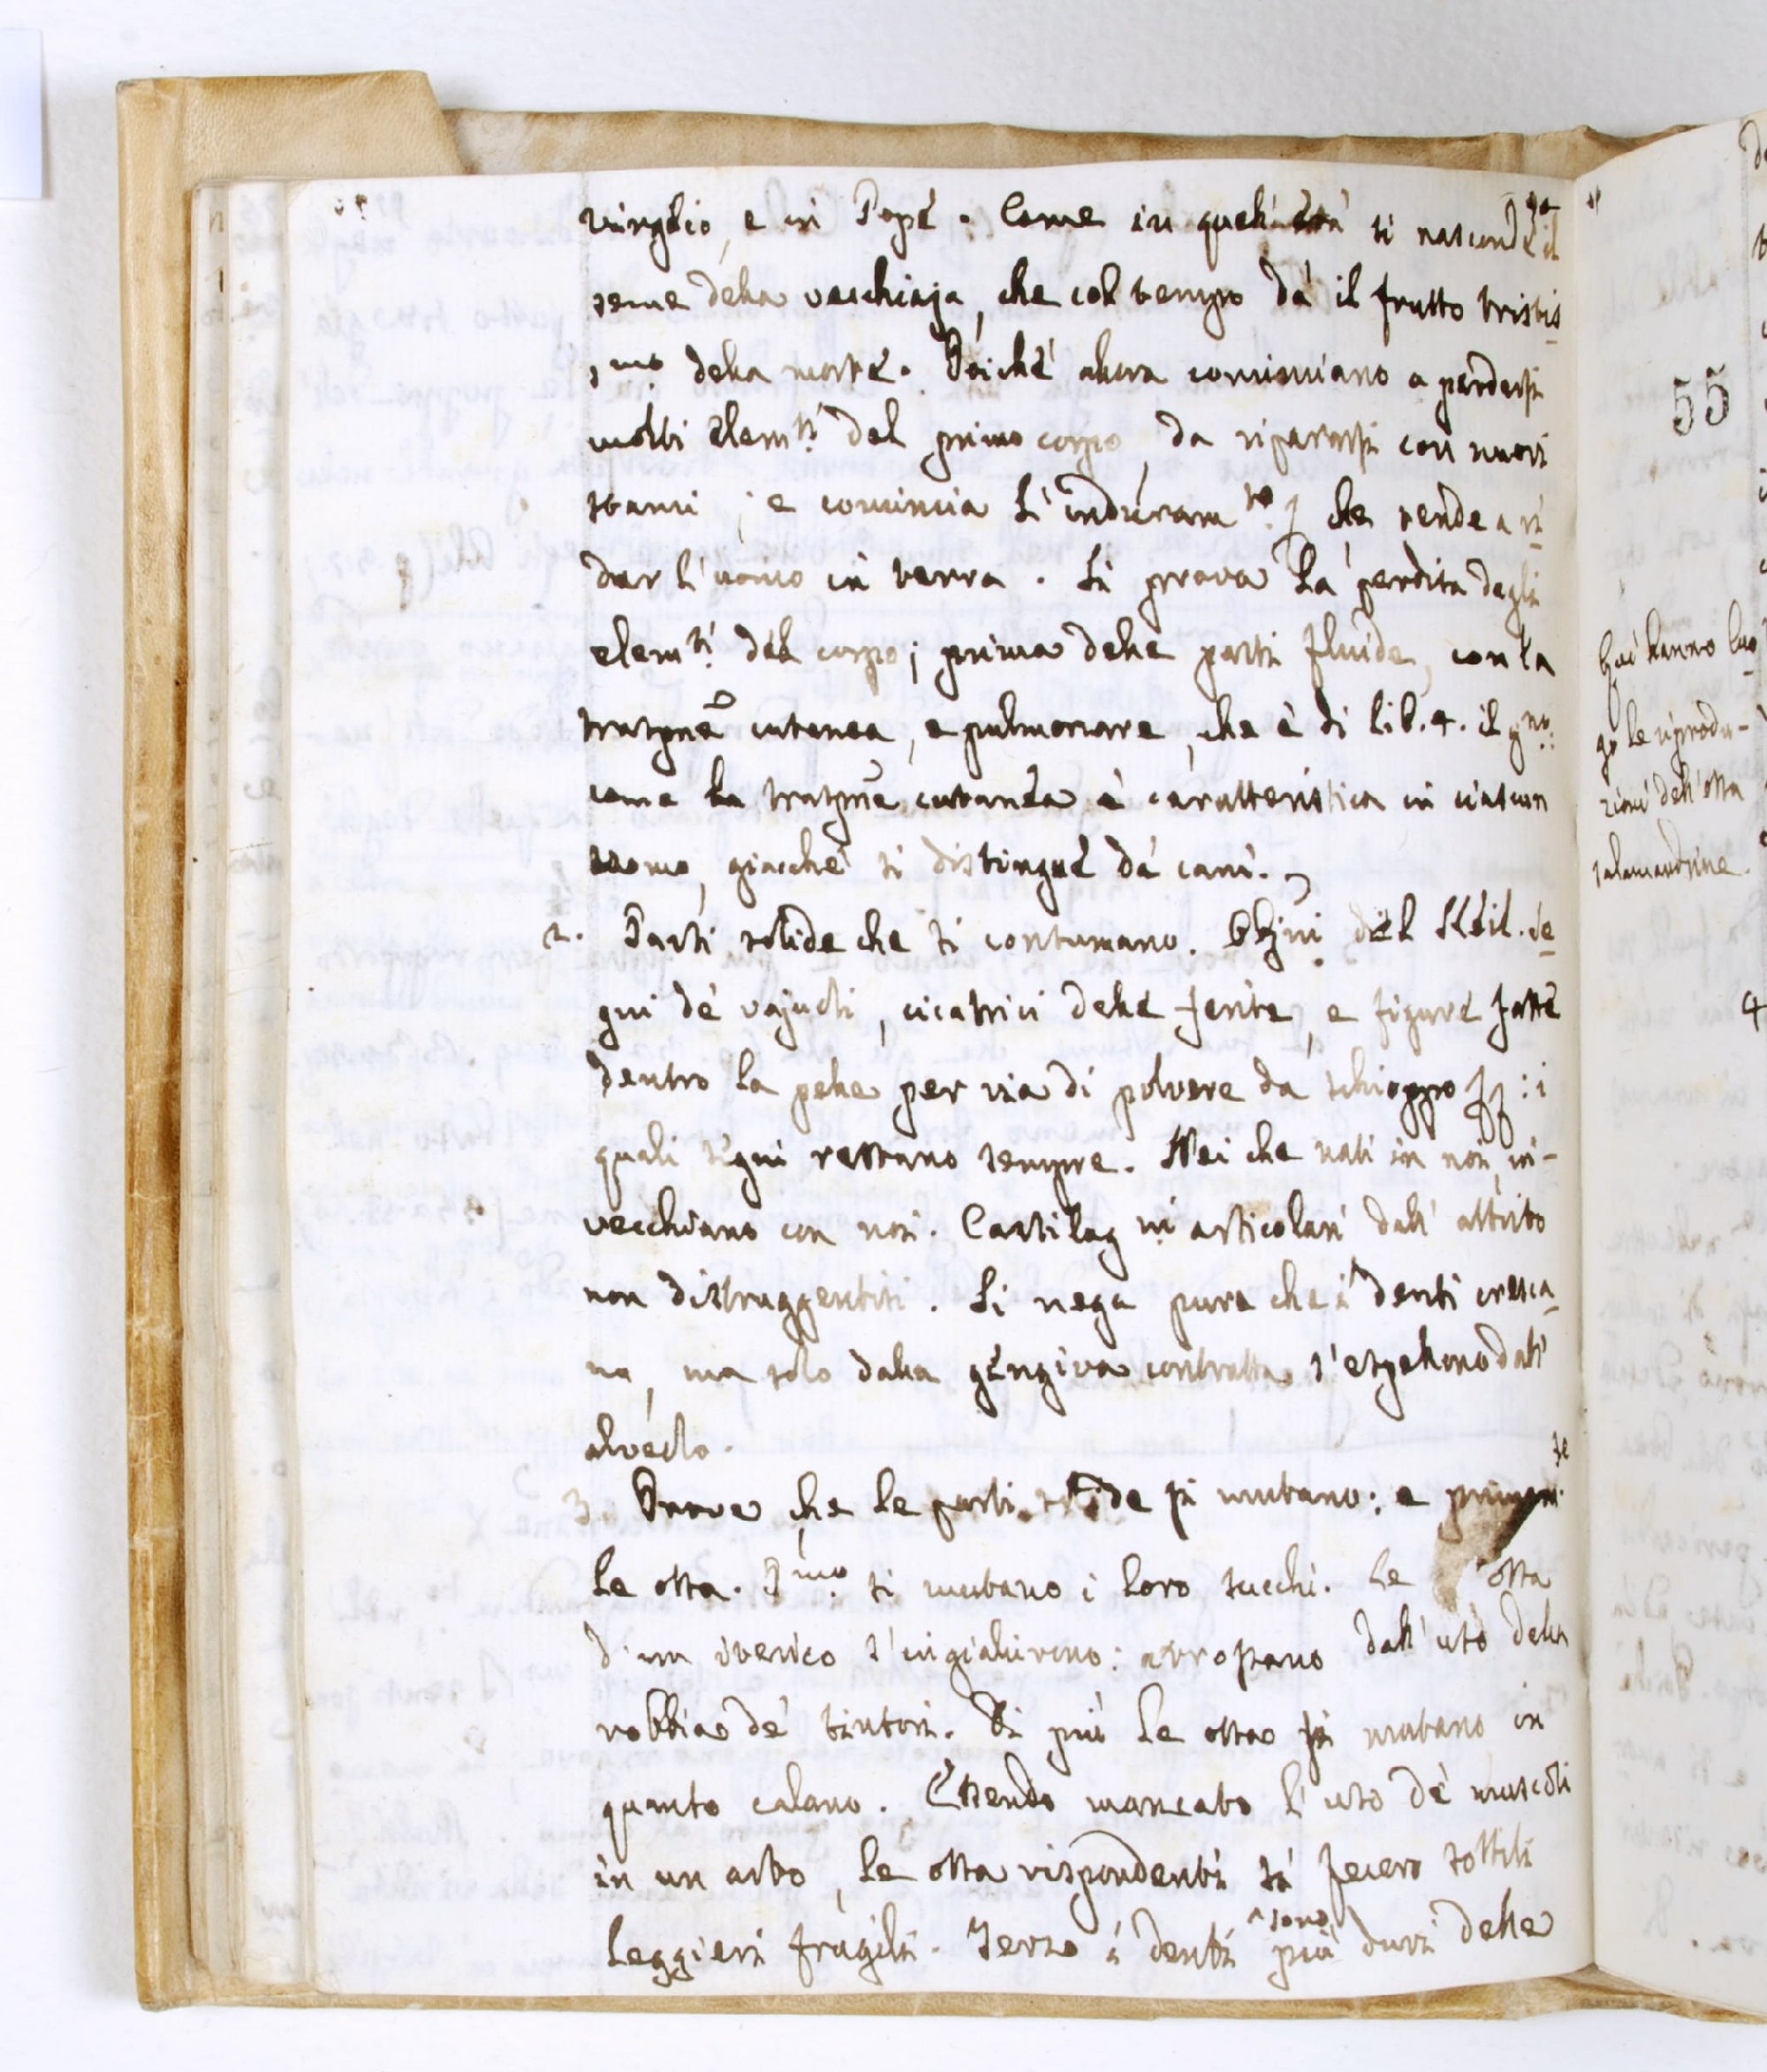 Virgilio, e in Pope. Come in quell'età si nasconda il
seme della vecchiaja, che col tempo dà il frutto tristis
smo della morte. Poiché allora cominciano a perdersi
molti elemti del primo corpo, da ripararsi con nuovi
stami; e comincia l'induramto che rende a ri
dur l'uomo in terra. Si prova la perdita degli
elemti del corpo; prima delle parti fluide, con la
traspne cutanea, e pulmonare, che è di lib. 4. il gno:
come la traspne cutanea è caratteristica in ciascun
uomo, giacché si distingue da cani.
2. Parti solide che si consumano. Obbjni del Keil. se
gni de' vajuoli, cicatrici delle ferite, e figure fatte
dentro la pelle per via di polvere da schioppo: i
quali segni restano sempre. Nei che nati in noi, in-
vecchiano con noi. Cartilagni articolari dall'attrito
non distruggentisi. Si nega pure che i denti cresca
no, ma solo dalla gengiva contratta s'espellono dall'
alveolo.
3. Prove che le parti solide si mutano: e primamte
le ossa. Pmo si mutano i loro succhi. Le ossa
d'un itterico s'ingialirono: arrossano dall'uso della
robbia de' tintori. Di più le ossa si mutano in
quanto calano. Essendo mancato l'uso de' muscoli
in un arto, le ossa rispondenti si fecero sottili
leggieri fragili. Terzo i denti sono più duri delle
55
Qui hanno luo
go le riprodu-
zioni dell'ossa
salamandrine.
4